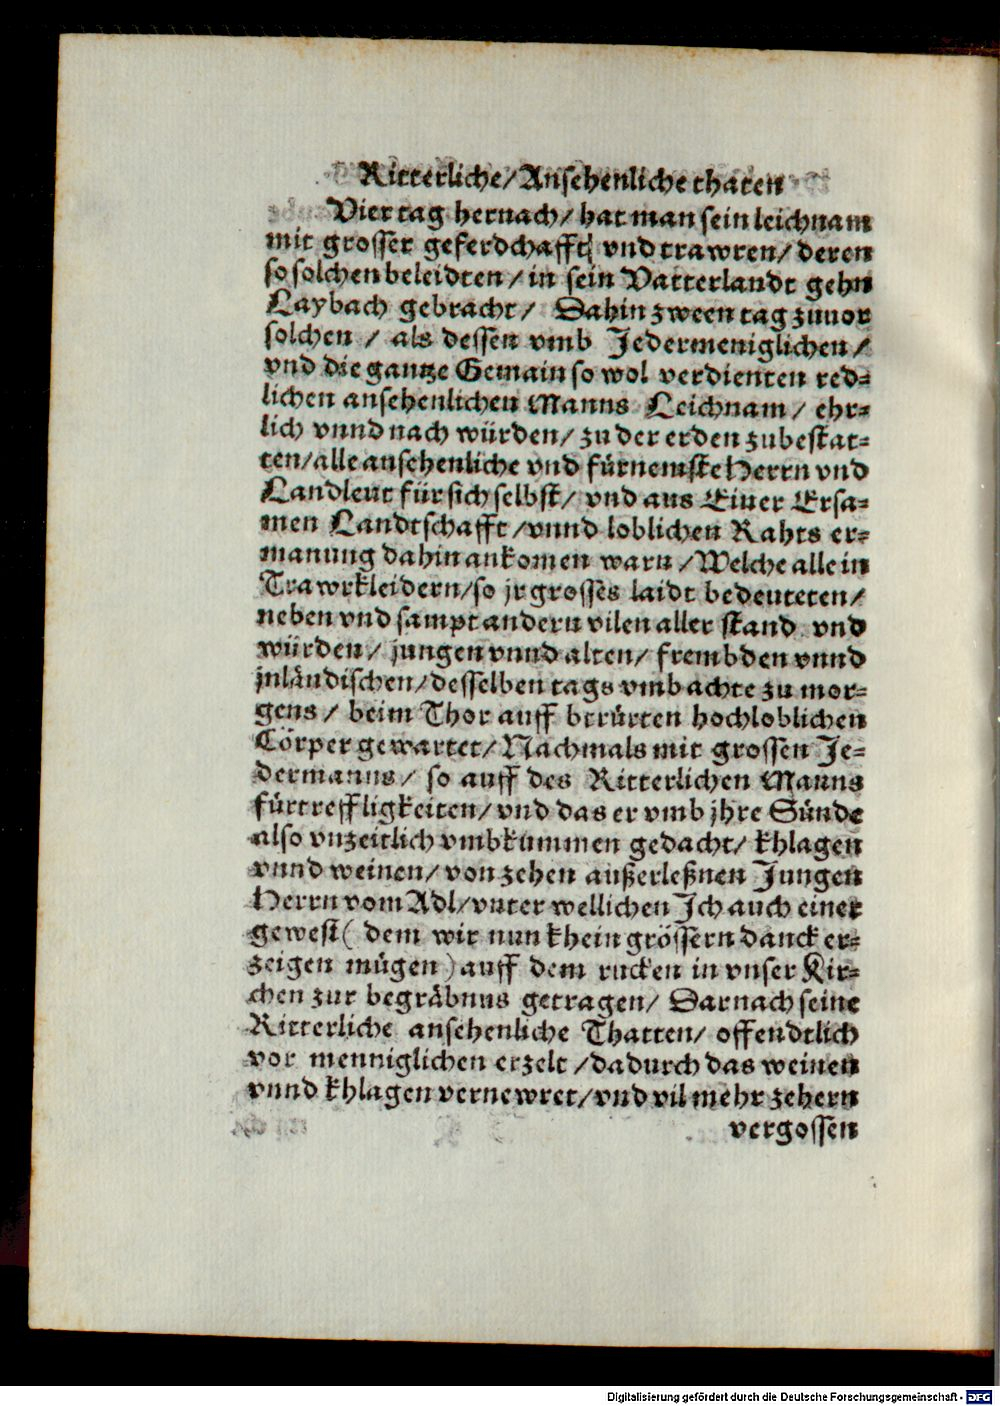 Ritterliche/Ansehenliche thaten
Vier tag hernach/ hat man sein leichnam
mit grosser geferdschafft/ vnd trawren/ deren
so solchen beleidten/ in sein Vatterlandt gehn
Laybach gebracht/ Dahin zween tag zuuor
solchen / als dessen vmb Jedermeniglichen/
vnd die gantze Gemain so wol verdienten red-
lichen ansehenlichen Manns Leichnam/ ehr-
lich vnnd nach würden/ zu der erden zubestat-
ten/alle ansehenliche vnd fürnemste Herrn vnd
Landleut für sich selbst/ vnd aus Einer Ersa-
men Landtschafft /vnnd loblichen Rahts er-
manung dahin ankomen warn /Welche alle in
Trawrkleidern/so jr grosses laidt bedeuteten/
neben vnd sampt andern vilen aller stand vnd
würden/ jungen vnnd alten/ frembden vnnd
jnländischen/desselben tags vmb achte zu mor-
gens/ beim Thor auff berürten hochloblichen
Cörper gewartet/ Nachmals mit grossen Je-
dermanns/ so auff des Ritterlichen Manns
fürtreffligkeiten/vnd das er vmb jhre Sünde
also vnzeitlich vmbkummen gedacht/ khlagen
vnnd weinen/ von zehen außerleßnen Jungen
Herrn vom Adl/vnter wellichen Ich auch einer
gewest( dem wir nun khein grössern danck er-
zeigen mügen ) auff dem rucken in vnser Kir-
chen zur begräbnus getragen/ Darnach seine
Ritterliche ansehenliche Thatten/ offendtlich
vor menniglichen erzelt /dadurch das weinen
vnnd khlagen vernewret/vnd vil mehr zehern
vergossen
Digitalisierung gefördert durch die Deutsche Forschungsgemeinschaft - DFG